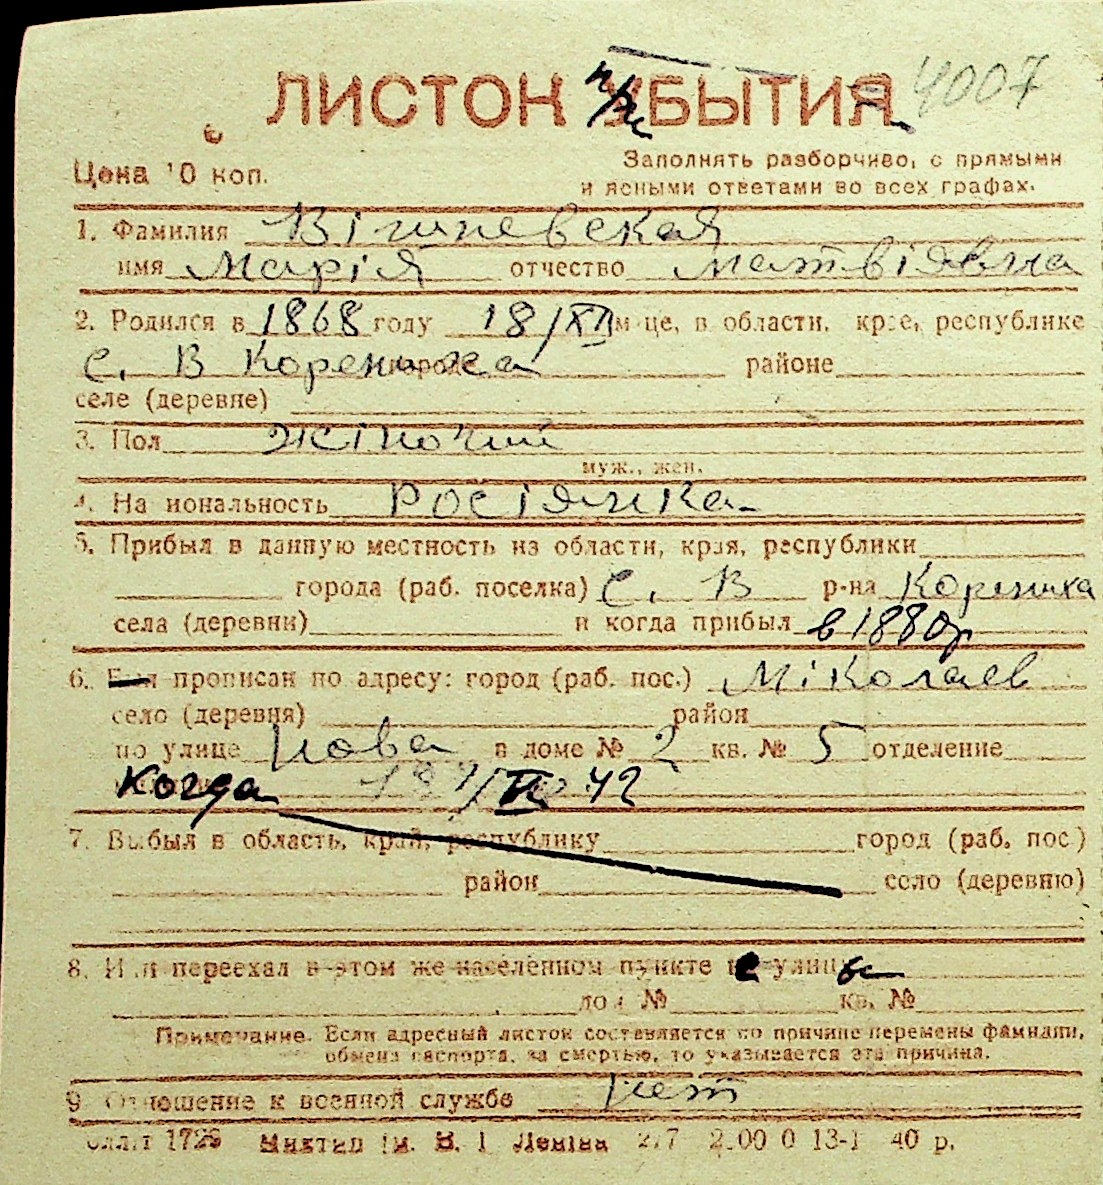 ЛИСТОК при БЫТИЯ 4007
Цена 10 коп.
Заполнять разборчиво, с прямыми
и ясными ответами во всех графах.
1. Фамилия Вішневская
имя Марія отчество Матвіявна
2. Родился в 1868 году 18/XII м-це, в области, крае, республике
с. В Корениха городе районе
селе (деревне)
3. Пол жіночий
муж., жен.
4. На иональность Росіянка
5. Прибыл в данную местность из области, края, республики
города (раб. поселка) С. В р-на Корениха
села (деревни) и когда прибыл в 1880р
6. Был прописан по адресу: город (раб. пос.) Міколаев
село (деревня) район
по улице Нова в доме № 2 кв. № 5 отделение
когда 42
7. Выбыл в область, край, республику город (раб. пос.)
район село (деревню)
8. Или переехал в этом же населенном пункте с улицы
дом № кв. №
Примечание. Если адресный листок составляется по причине перемены фамилии,
обмена паспорта, за смертью, то указывается эта причина.
9. Отношение к военной службе Нет
1729 В. І Леніна 2.00 0 13-1 40 р.